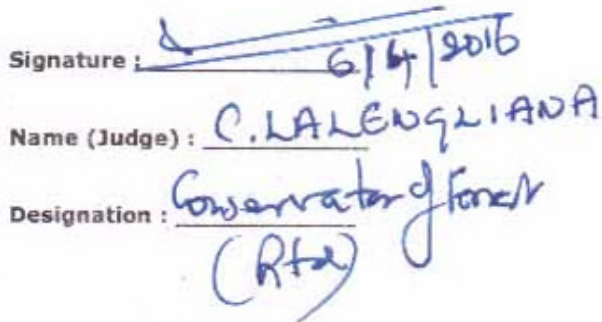 Signature : 6/4/2016
Name (Judge) : C. LALENGLIANA
Designation : Conservator of Forest
(Rtd)